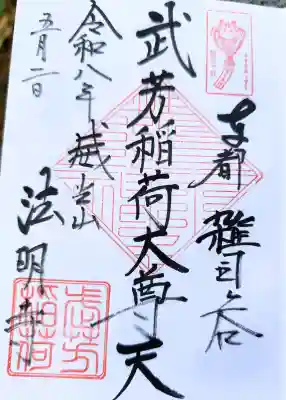 東都 雑司ヶ谷
武芳稲荷大尊天
令和八年
五月二日
威光山
法明寺
武芳稲荷